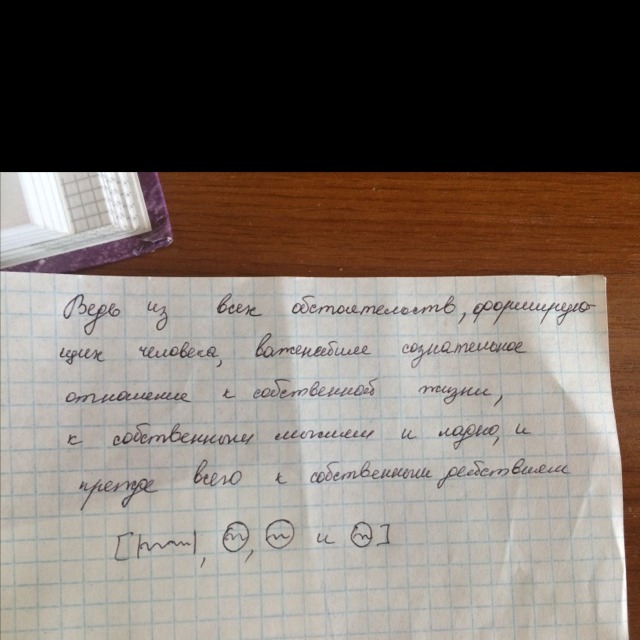 Ведь из всех обстоятельств, формирую-
щих человека, важнейшее сознательное
отношение к собственной жизни,
к собственным мыслям и ладно, и
прежде всего к собственным действиям
[|~~~|, ⊝, ⊝ и ⊝]